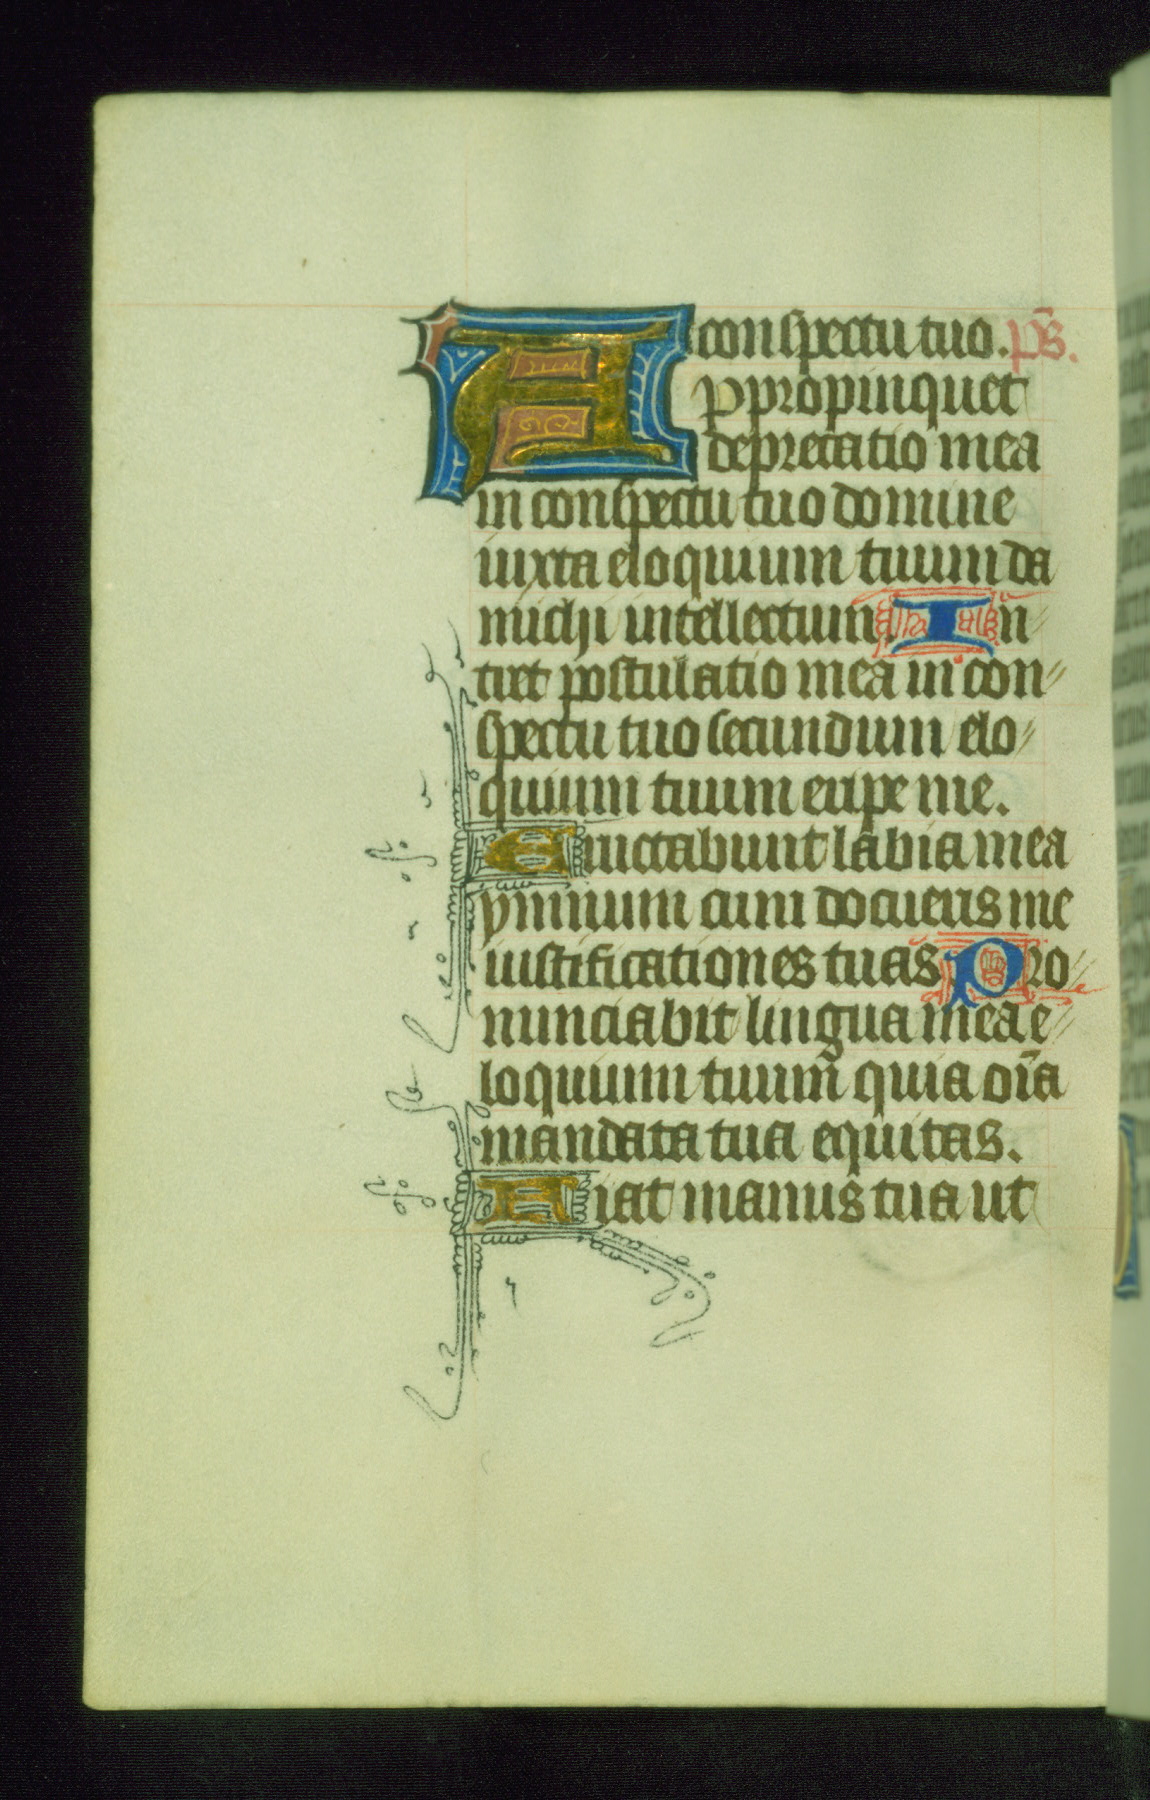 conspectu tuo. ps̄.
Appropinquet
deprecatio mea
in conspectu tuo domine
iuxta eloquium tuum da
michi intellectum. In
tret postulatio mea in con
spectu tuo secundum elo
quium tuum eripe me.
Eructabunt labia mea
ymnum cum docueris me
iustificationes tuas Pro
nunciabit lingua mea e
loquium tuum̄ quia oīa
mandata tua equitas.
Fiat manus tua ut